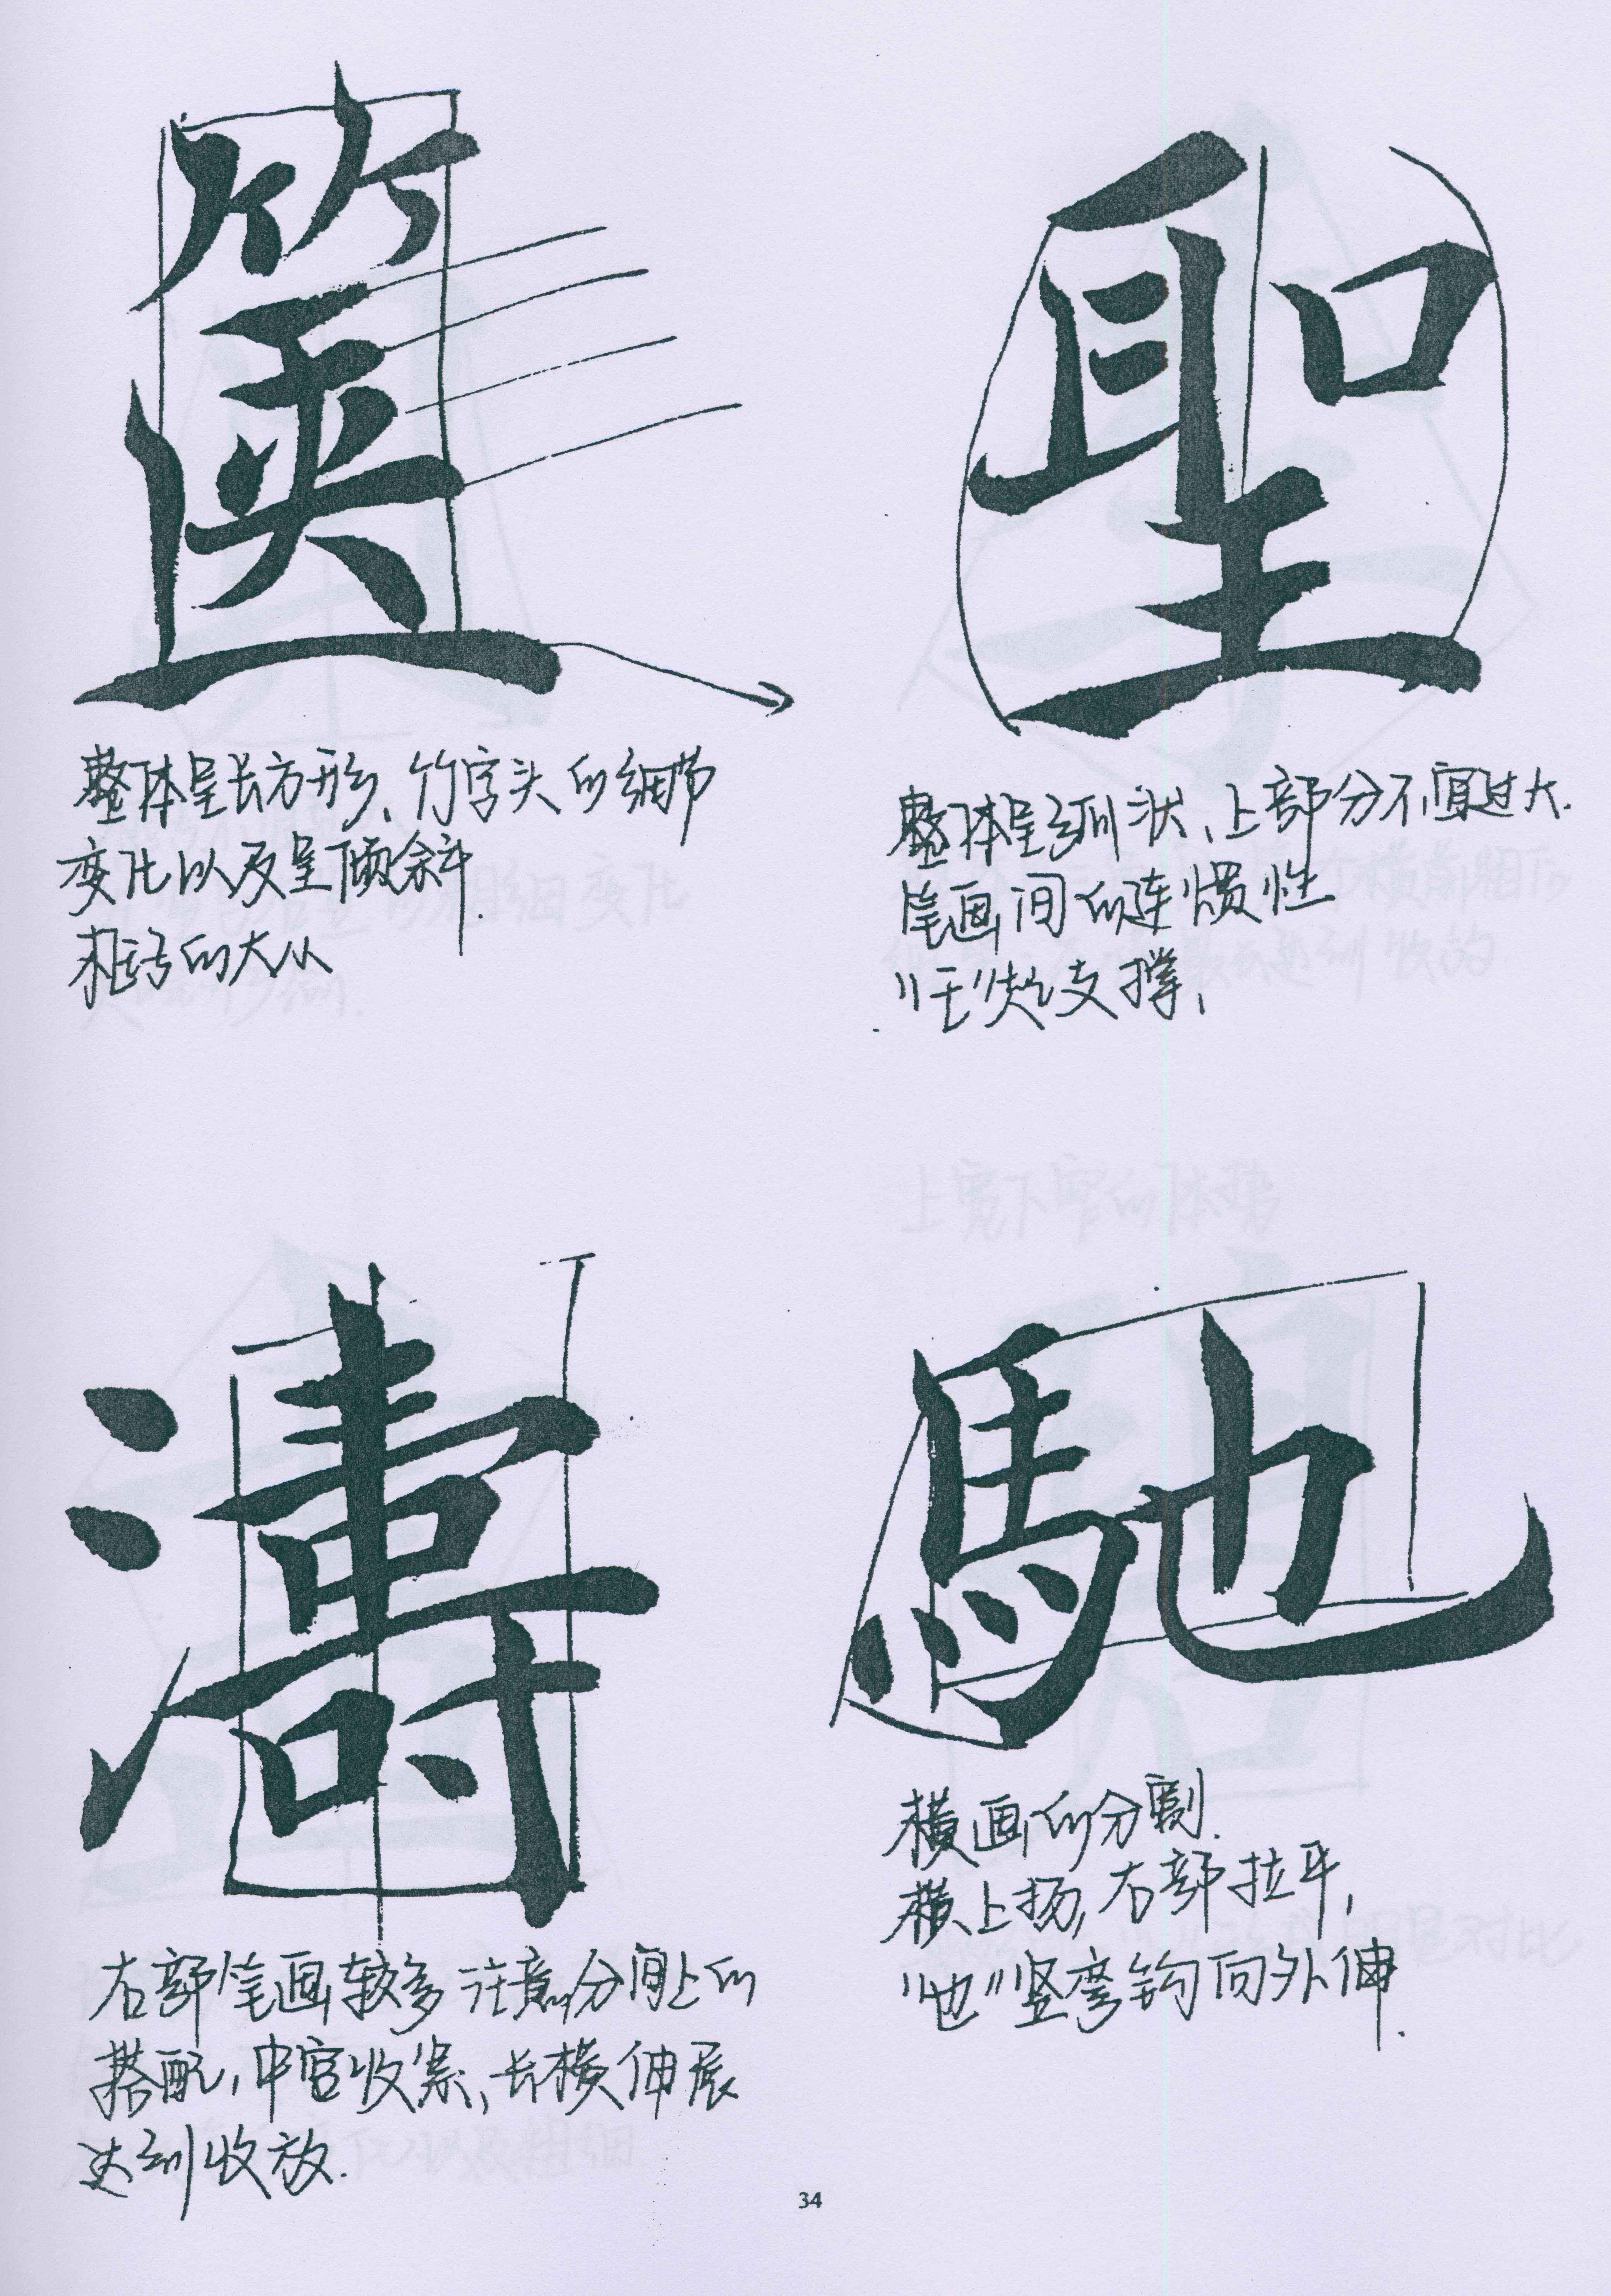 整体呈长方形、竹字头的细节
变化以及呈倾斜.
的大
聖
整体呈弧状、上部分不宜过大.
笔画间的连惯性
"王"起支撑、
濤
右部笔画较多 注意分间上的
搭配,中宫收紧、长横伸展
达到收放.
馳
横画的分割.
横上扬,右部拉平,
"也"竖弯钩向外伸.
34